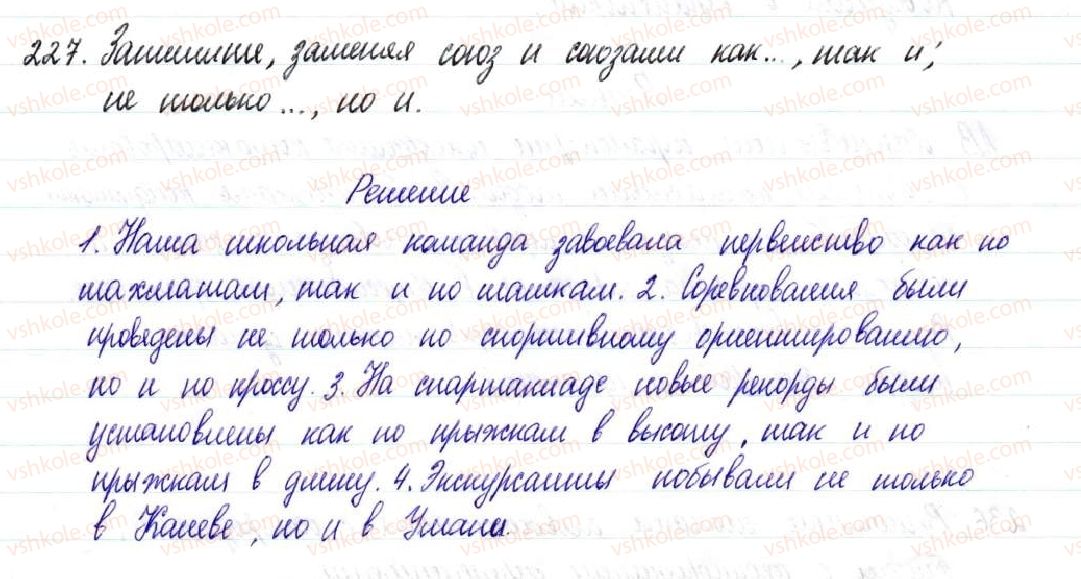 227. Запишите, заменяя союз и союзами как..., так и;
не только ..., но и.
Решение
1. Наша школьная команда завоевала первенство как по
шахматам, так и по шашкам. 2. Соревнования были
проведены не только по спортивному ориентированию,
но и по кроссу. 3. На спартакиаде новые рекорды были
установлены как по прыжкам в высоту, так и по
прыжкам в длину. 4. Экскурсанты побывали не только
в Каневе, но и в Умани.